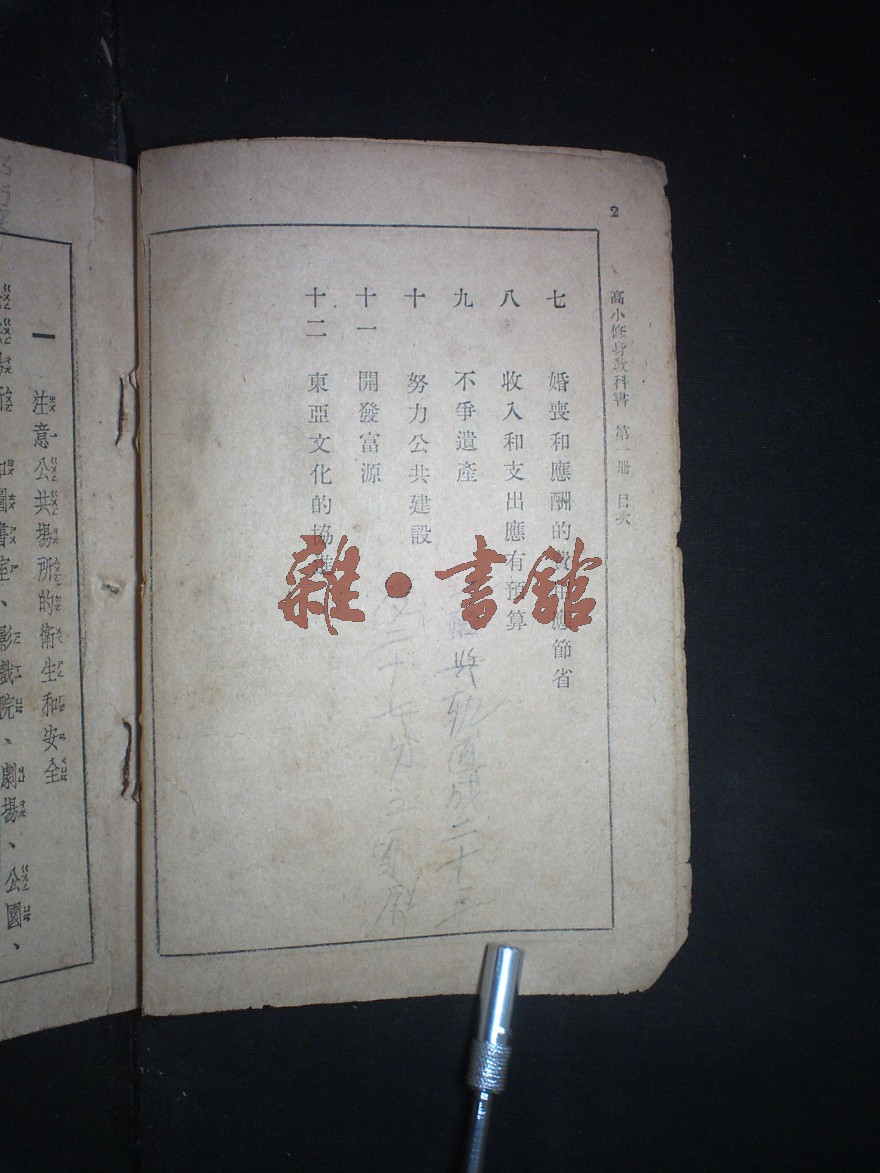 2
高小修身教科書 第一册 目次
七 婚喪和應酬的費用應節省
八 收入和支出應有預算
九 不爭遺產
十 努力公共建設
十一 開發富源
十二 東亞文化的協進
二十三
二十七
雜·書館
一 注意公共場所的衛生和安全
圖書室、影戲院、劇場、公園、